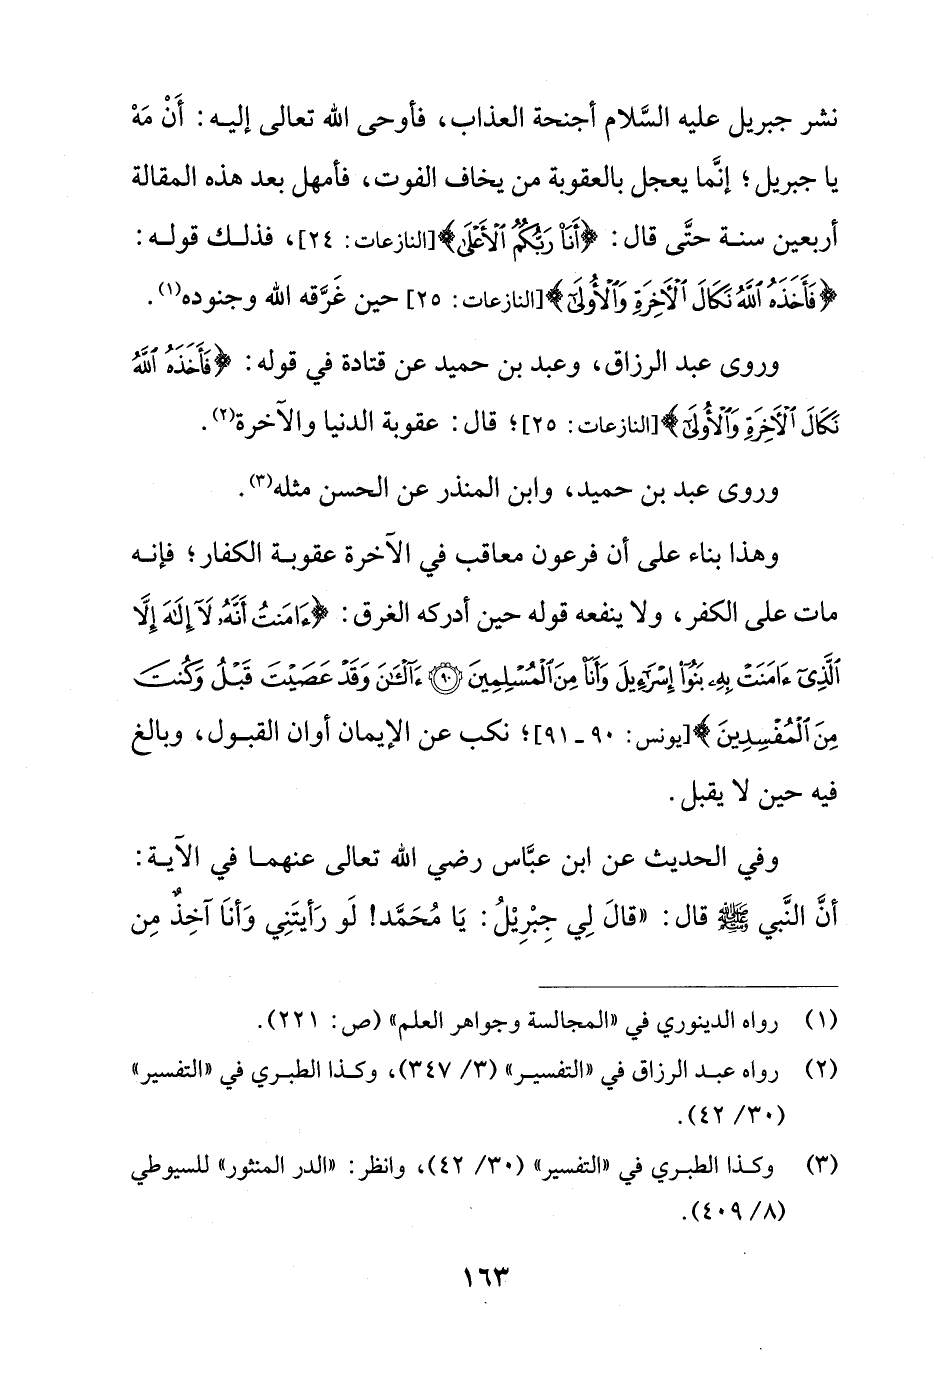 نشر جبريل عليه السَّلام أجنحة العذاب، فأوحى الله تعالى إليه: أَنْ مَهْ
يا جبريل؛ إنَّما يعجل بالعقوبة من يخاف الفوت، فأمهل بعد هذه المقالة
أربعين سنة حتَّى قال: ﴿أَنَا۠ رَبُّكُمُ ٱلْأَعْلَىٰ﴾[النازعات: ٢٤]، فذلك قوله:
﴿فَأَخَذَهُ ٱللَّهُ نَكَالَ ٱلْآخِرَةِ وَٱلْأُولَىٰٓ﴾[النازعات: ٢٥] حين غَرَّقه الله وجنوده(١).
وروى عبد الرزاق، وعبد بن حميد عن قتادة في قوله: ﴿فَأَخَذَهُ ٱللَّهُ
نَكَالَ ٱلْآخِرَةِ وَٱلْأُولَىٰٓ﴾[النازعات: ٢٥]؛ قال: عقوبة الدنيا والآخرة(٢).
وروى عبد بن حميد، وابن المنذر عن الحسن مثله(٣).
وهذا بناء على أن فرعون معاقب في الآخرة عقوبة الكفار؛ فإنه
مات على الكفر، ولا ينفعه قوله حين أدركه الغرق: ﴿ءَامَنتُ أَنَّهُۥ لَآ إِلَٰهَ إِلَّا
ٱلَّذِىٓ ءَامَنَتْ بِهِۦ بَنُوٓا۟ إِسْرَٰٓءِيلَ وَأَنَا۠ مِنَ ٱلْمُسْلِمِينَ ۝٩٠ ءَآلْـَٰٔنَ وَقَدْ عَصَيْتَ قَبْلُ وَكُنتَ
مِنَ ٱلْمُفْسِدِينَ﴾[يونس: ٩٠ـ٩١]؛ نكب عن الإيمان أوان القبول، وبالغ
فيه حين لا يقبل.
وفي الحديث عن ابن عبَّاس رضي الله تعالى عنهما في الآية:
أنَّ النَّبي ﷺ قال: «قالَ لِي جِبْرِيْلُ: يَا مُحَمَّد! لَو رَأَيتَنِي وَأَنَا آخِذٌ مِن
(١) رواه الدينوري في «المجالسة وجواهر العلم» (ص: ٢٢١).
(٢) رواه عبد الرزاق في «التفسير» (٣/ ٣٤٧)، وكذا الطبري في «التفسير»
(٣٠/ ٤٢).
(٣) وكذا الطبري في «التفسير» (٣٠/ ٤٢)، وانظر: «الدر المنثور» للسيوطي
(٨/ ٤٠٩).
١٦٣